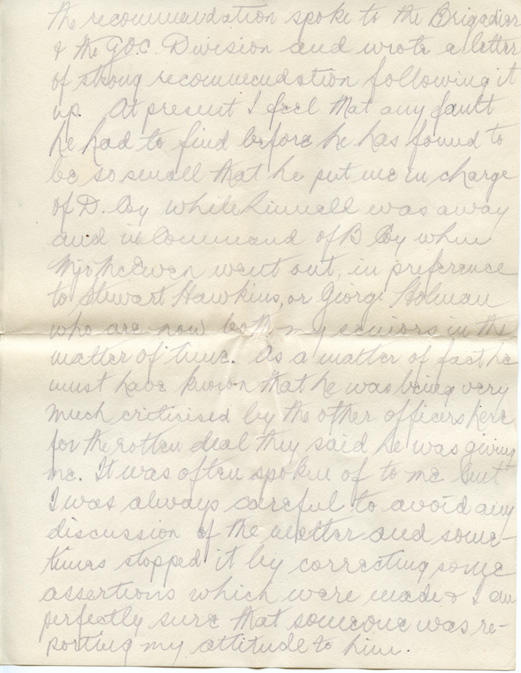 the recommendation spoke to the Brigadier
& the G.O.C. Division and wrote a letter
of strong recommendation following it
up. At present I feel that any fault
he had to find before he has found to
be so small that he put me in charge
of D. Coy while Linnell was away
and in Command of B Coy when
Mjr McEwen went out, in preference
to Stewart Hawkins, or George Holman
who are now both my seniors in the
matter of time. As a matter of fact he
must have known that he was being very
much critirised by the other officers here
for the rotten deal they said he was giving
me. It was often spoken of to me but
I was always careful to avoid any
discussion of the matter and some-
times stopped it by correcting some
assertions which were made & I am
perfectly sure that someone was re-
porting my attitude to him.